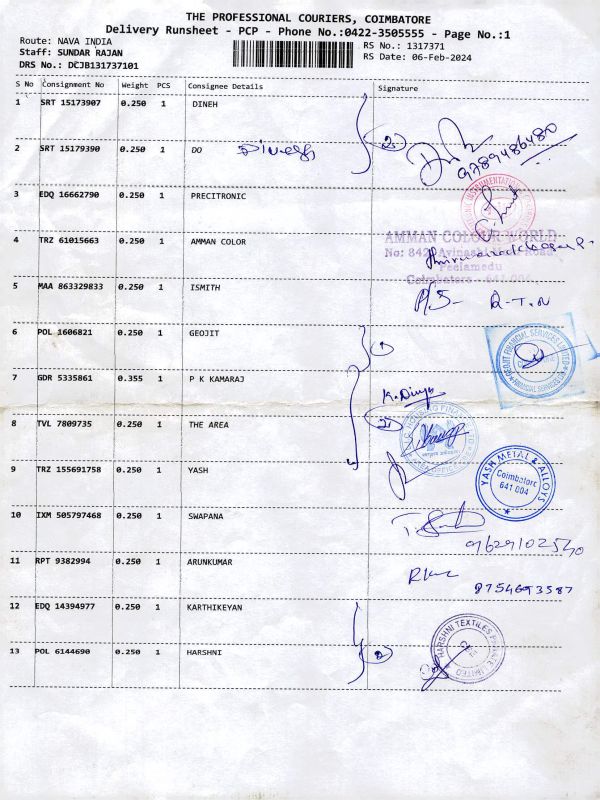 THE PROFESSIONAL COURIERS, COIMBATORE
Delivery Runsheet - PCP - Phone No.:0422-3505555 - Page No.:1
Route: NAVA INDIA RS No.: 1317371
Staff: SUNDAR RAJAN RS Date: 06-Feb-2024
DRS No.: DCJB131737101
S No Consignment No Weight PCS Consignee Details Signature
1 SRT 15173907 0.250 1 DINEH
2 SRT 15179390 0.250 1 DO Dinesh 2 9789486480
3 EDQ 16662790 0.250 1 PRECITRONIC
4 TRZ 61015663 0.250 1 AMMAN COLOR
AMMAN COLOUR WORLD
No: 842, Avinashi Road
Peelamedu
Coimbatore - 641 004
5 MAA 863329833 0.250 1 ISMITH
6 POL 1606821 0.250 1 GEOJIT
GEOJIT FINANCIAL SERVICES LIMITED
7 GDR 5335861 0.355 1 P K KAMARAJ K. Divya
8 TVL 7809735 0.250 1 THE AREA 2
9 TRZ 155691758 0.250 1 YASH
YASH METAL & ALLOYS
Coimbatore
641 004
10 IXM 505797468 0.250 1 SWAPANA
9629102540
11 RPT 9382994 0.250 1 ARUNKUMAR
8754693587
12 EDQ 14394977 0.250 1 KARTHIKEYAN
13 POL 6144690 0.250 1 HARSHNI
HARSHNI TEXTILES PRIVATE LIMITED